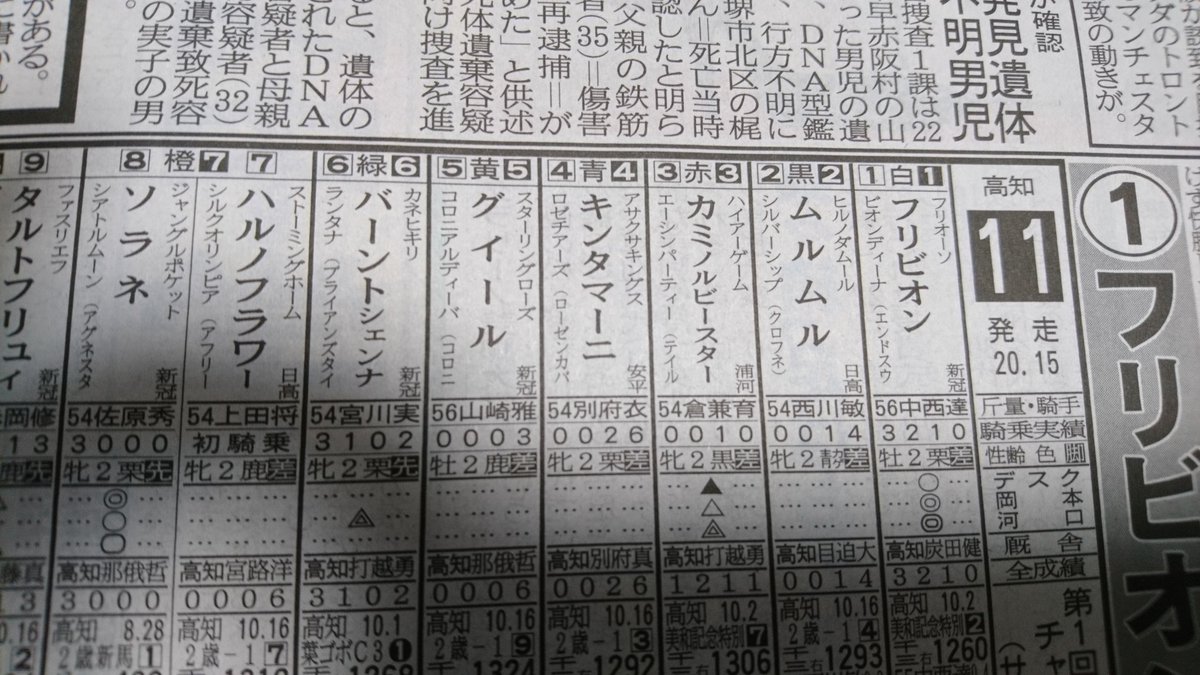 が確認
発見遺体
不明男児
ダのトロント
マンチェスタ
致の動きが。
捜査１課は22
早赤阪村の山
った男児の遺
、ＤＮＡ型鑑
、行方不明に
＝死亡当時
堺市北区の梶
認したと明ら
父親の鉄筋
者（35）＝傷害
再逮捕＝が
めた」と供述
死体遺棄容疑
向け捜査を進
ると、遺体の
されたＤＮＡ
容疑者と母親
容疑者（32）
遺棄致死容
の実子の男
がある。
①フリビオン
高知
11
発走
20.15
斤量・騎手
騎乗実績
性齢色脚
デスク
岡本
河口
厩舎
全成績
第１回
1白1
フリオーソ
フリビオン
ビオンディーナ（エンドスウ
新冠
56中西達
3210
牝２栗差
○
◎
◎
高知炭田健
3210
高知 10.2
美和記念特別2
1260
2黒2
ヒルノダムール
ムルムル
シルバーシップ（クロフネ）
日高
54西川敏
0014
牝２青差
高知目迫大
0014
高知 10.16
２歳－1 4
1293
3赤3
ハイアーゲーム
カミノルビースター
エーシンパーティー（テイル
浦河
54倉兼育
0010
牝２黒差
▲
△
高知打越勇
1211
高知 10.2
美和記念特別7
1306
4青4
アサクサキングス
キンタマーニ
ロゼチアーズ（ローゼンカバ
安平
54別府衣
0026
牝２鹿差
高知別府真
0026
高知 10.16
２歳－1 3
1292
5黄5
スターリングローズ
グイール
コロニアルディーバ（コロニ
新冠
56山崎雅
0003
牡２鹿差
高知那俄哲
0006
高知 10.16
２歳－1 9
1324
6緑6
カネヒキリ
バーントシェンナ
ランタナ（ブライアンズタイ
新冠
54宮川実
3102
牝２栗先
高知打越勇
3102
高知 10.1
葉ゴボＣ３1
7
ストーミングホーム
ハルノフラワー
シルクオリンピア（アフリー
日高
54上田将
初騎乗
牝２鹿差
高知宮路洋
0006
高知 10.16
２歳－1 7
8橙7
ジャングルポケット
ソラネ
シアトルムーン（アグネスタ
新冠
54佐原秀
3000
牝２栗先
◎
○
高知那俄哲
3000
高知 8.28
２歳新馬1
9
ファスリエフ
タルトフリュイ
新冠
岡修
13
鹿先
藤真
13
0.16
2